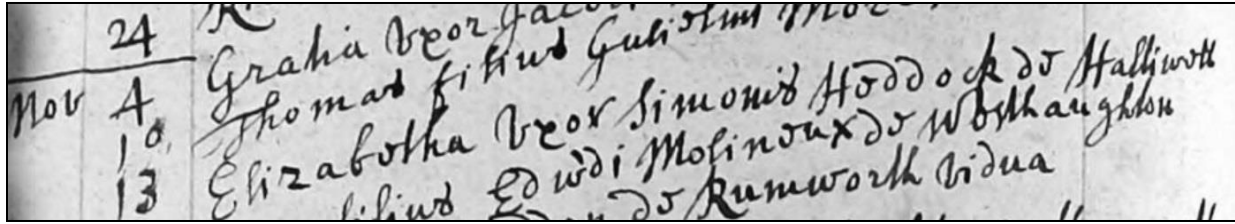 24
Gratia Uxor Jacobi
Nov 4 Thomas filius Gulielmi
10 Elizabetha Uxor Simonis Heddock de Halliwell
13 filius Edwdi Molineux de Westhaughton
de Rumworth Vidua